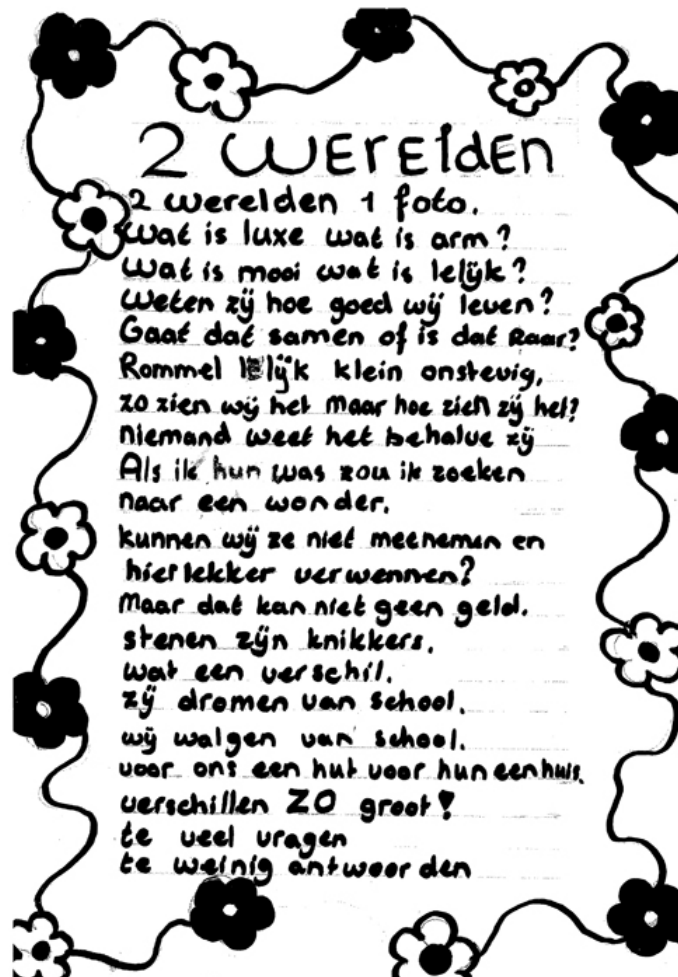 2 WErEldEN
2 werelden 1 foto.
Wat is luxe wat is arm?
Wat is mooi wat is lelijk?
Weten zij hoe goed wij leven?
Gaat dat samen of is dat Raar?
Rommel lelijk klein onstevig,
zo zien wij het maar hoe zien zij het?
niemand weet het behalve zij
Als ik hun was zou ik zoeken
naar een wonder.
kunnen wij ze niet meenemen en
hier lekker verwennen?
Maar dat kan niet geen geld.
stenen zijn knikkers.
wat een verschil.
zij dromen van school.
wij walgen van school.
voor ons een hut voor hun een huis.
verschillen ZO groot!
te veel vragen
te weinig antwoorden